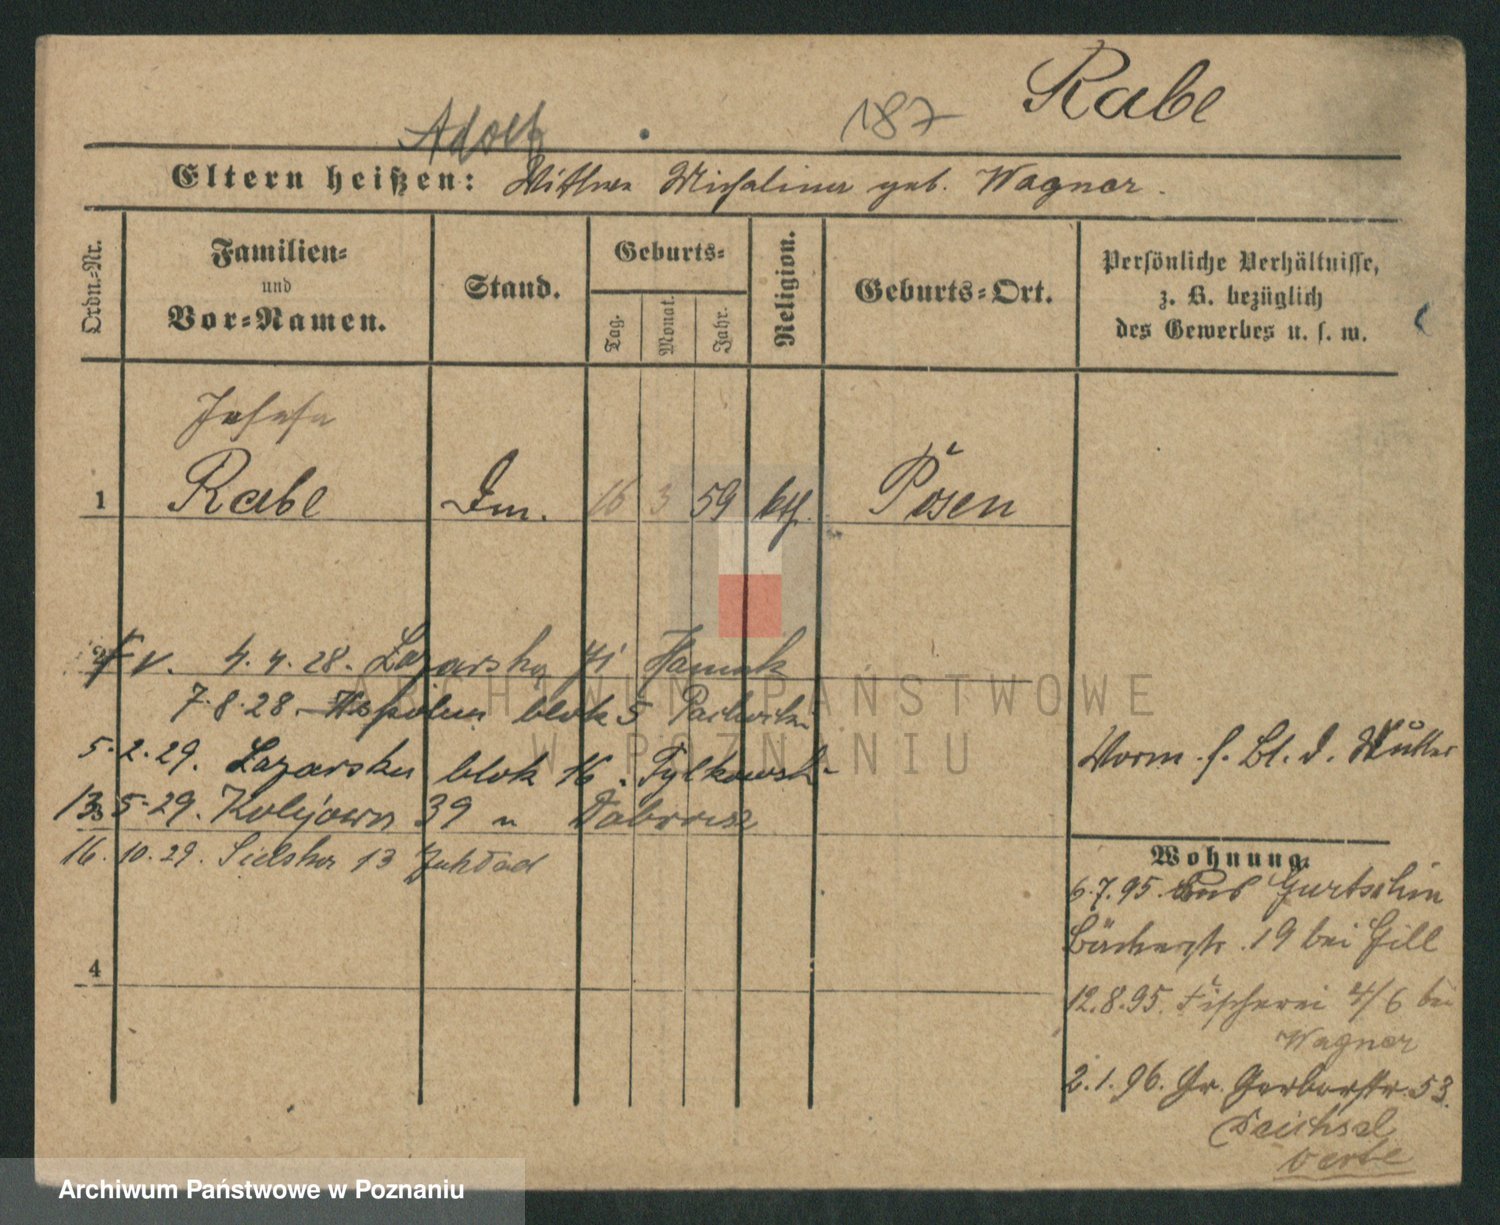 Rabe
Adolf 187
Eltern heißen: Wittwe Michalina geb. Wagner.
Ordn.-Nr.
Familien-
und
Vor-Namen.
Stand.
Geburts-
Tag.
Monat.
Jahr.
Religion.
Geburts-Ort.
Persönliche Verhältnisse,
z. B. bezüglich
des Gewerbes u. s. w.
Josefa
1 Rabe 16 3 59 kth. Posen
2 v. 4. 4. 28. Łazarska
7. 8. 28. blok 5
5. 2. 29. Łazarska blok 16. Tylkowski
3
13. 5. 29. 39
16. 10. 29. Sielska 13
4
Vorm. f. Bl. d. Mutter
Wohnung.
6.7.95. aus Gurtschin
Bäckerstr. 19 bei Gill
12.8.95. Fischerei 4/6 bei
Wagner
2.1.96. Gr. Gerberstr. 53.
ARCHIWUM PAŃSTWOWE
W POZNANIU
Archiwum Państwowe w Poznaniu